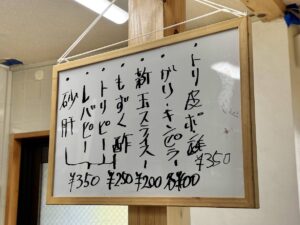 ・トリ皮ポン酢 ¥350
・ガリ・キンピラー 各¥00
・新玉スライスー ¥200
・もずく酢 ¥250
・トリピー
・レバピー
・砂肝 ¥350